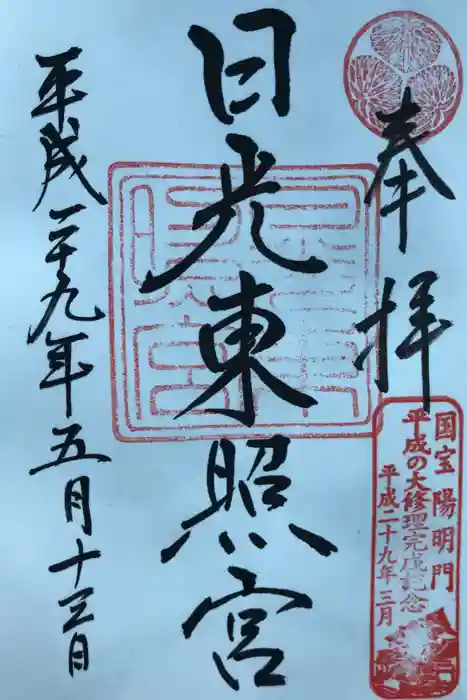 奉拝
国宝 陽明門
平成の大修理完成記念
平成二十九年三月
日光東照宮
平成二十九年五月十三日